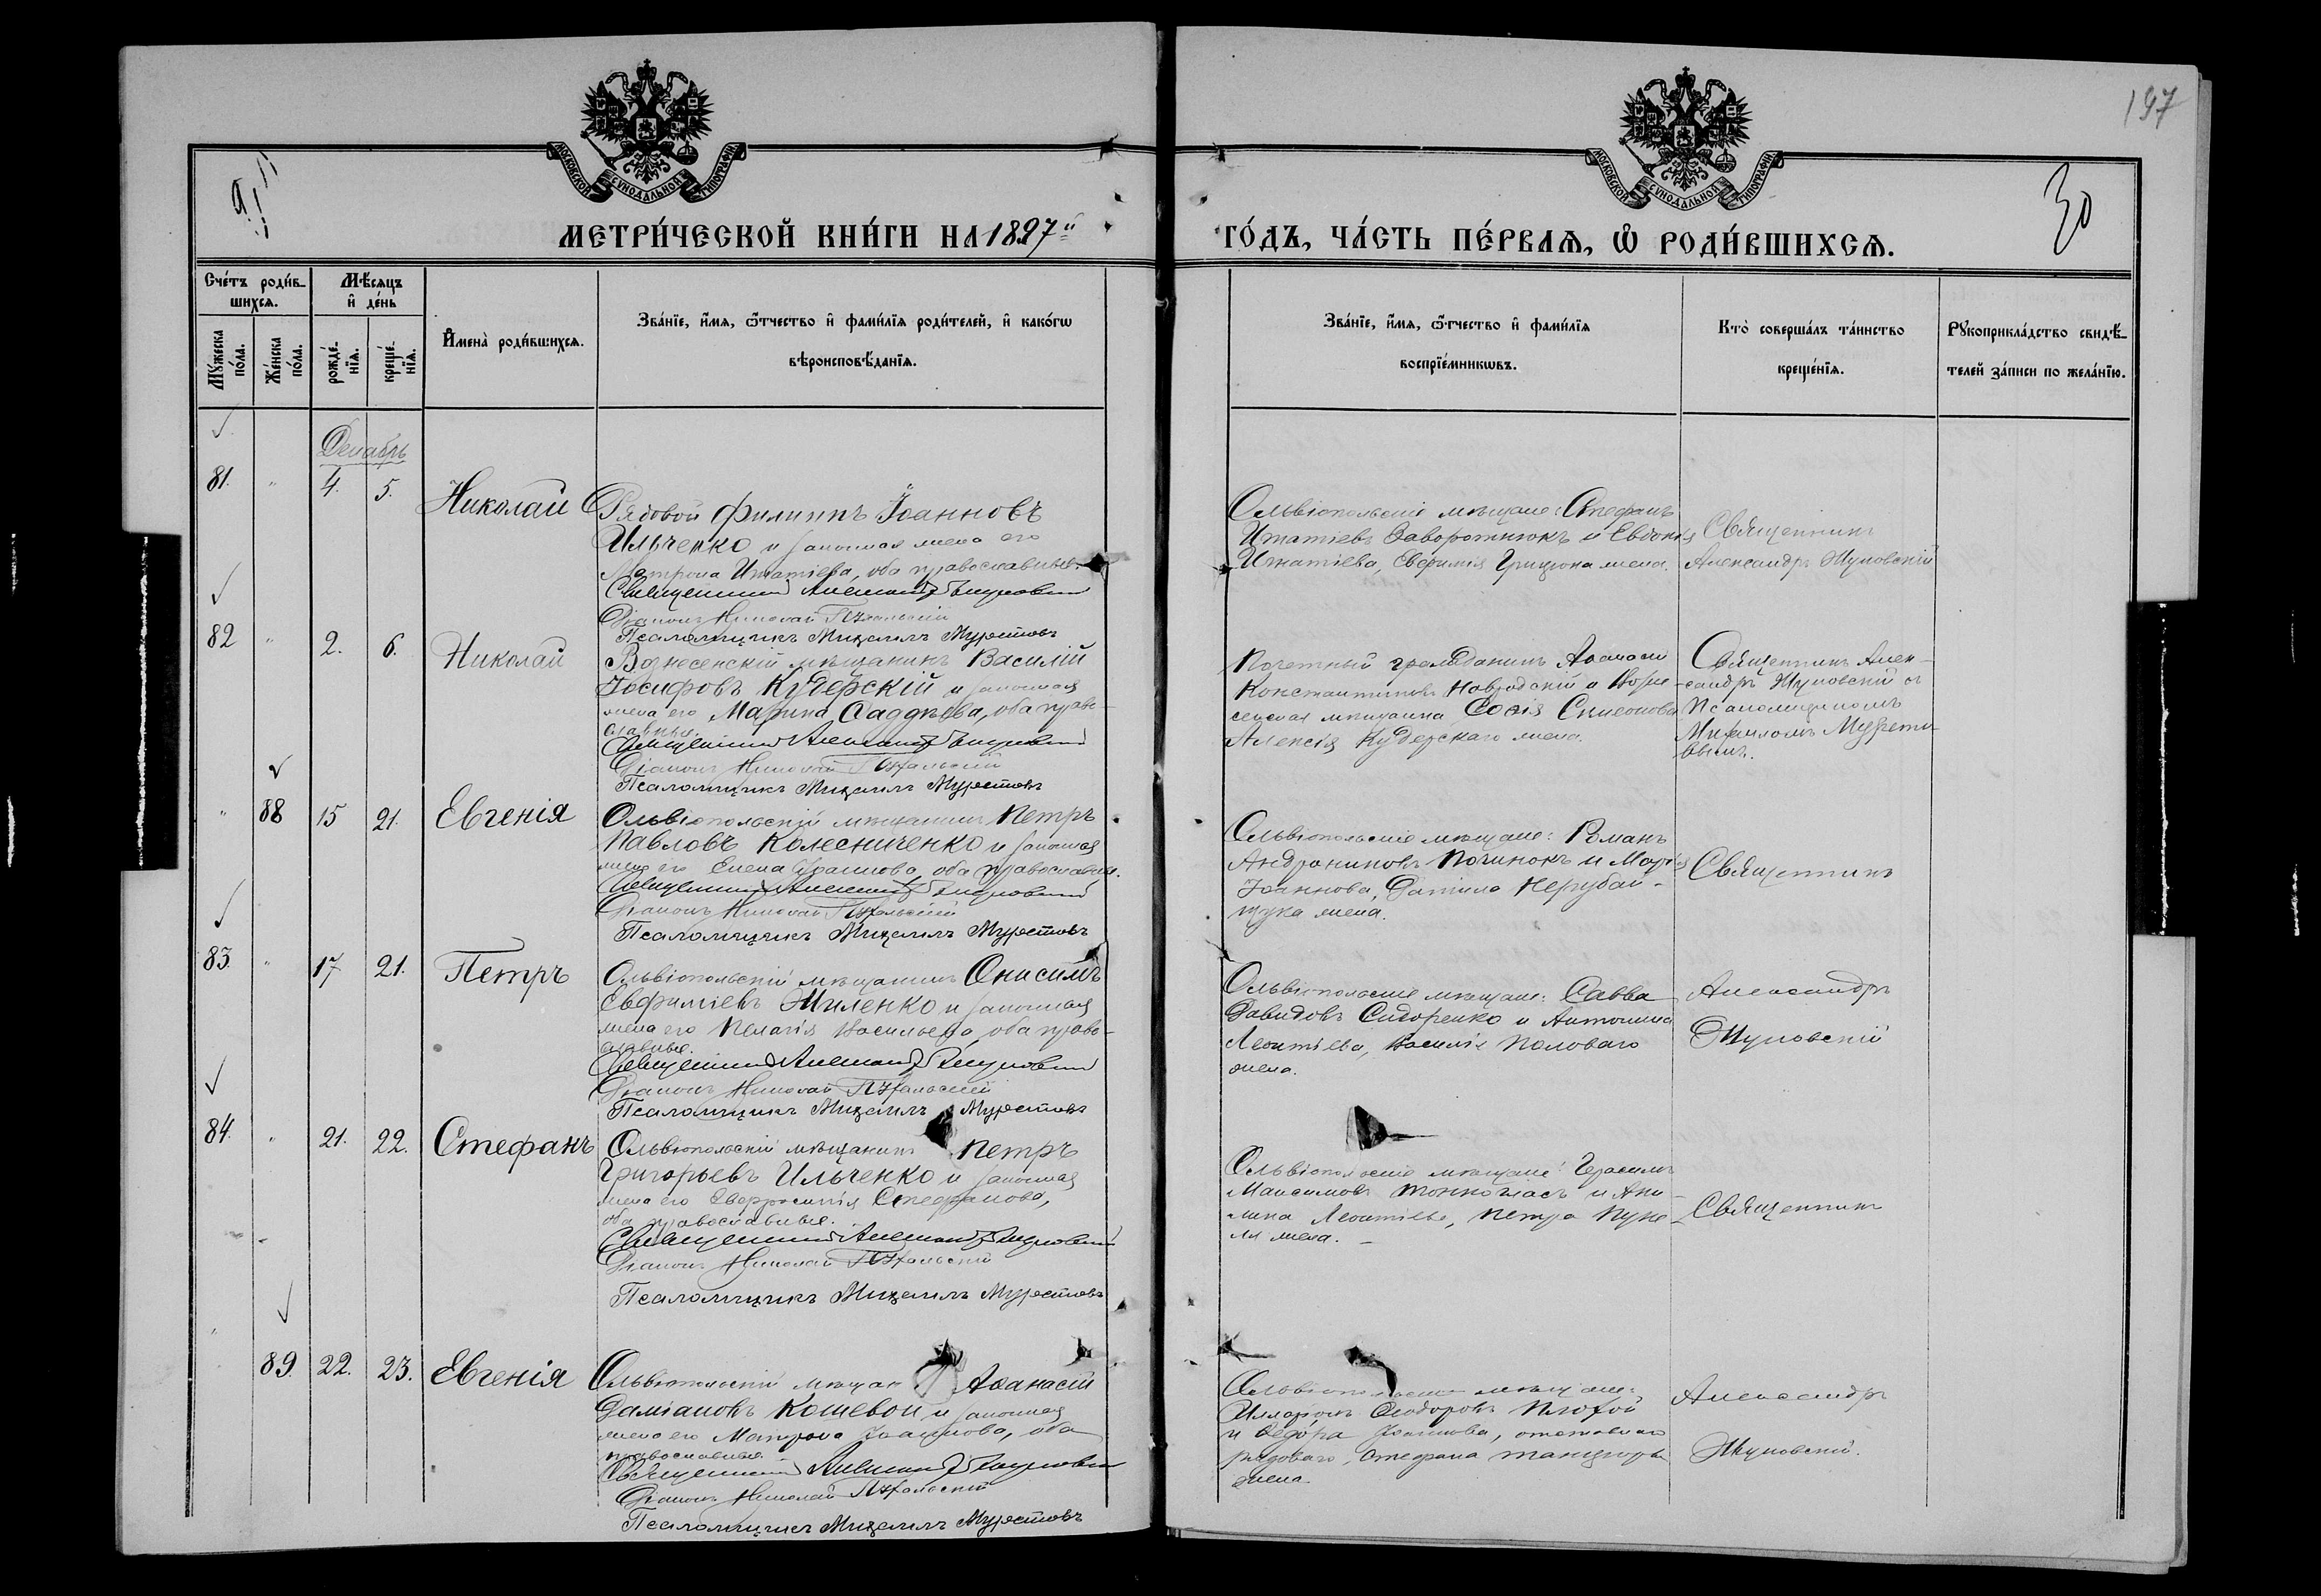 197
МОСКОВСКОЙ СѴНОДАЛЬНОЙ ТИПОГРАФІИ
МОСКОВСКОЙ СѴНОДАЛЬНОЙ ТИПОГРАФІИ
30
МЕТРИ́ЧЕСКОЙ КНИ́ГИ НА 1897й
ГО́ДЪ, ЧА́СТЬ ПЕ́РВАѦ, Ѡ҆ РОДИ́ВШИХСѦ.
Сче́тъ роди́в-
шихсѧ.
Мѣ́сѧцъ
и҆ де́нь
Мꙋ́жеска
по́ла.
Же́нска
по́ла.
рожде́-
нїѧ.
креще́-
нїѧ.
И҆мена̀ роди́вшихсѧ.
Зва́нїе, и҆́мѧ, ѻ҆́тчество и҆ фами́лїѧ роди́телей, и҆ како́гѡ
вѣроисповѣ́данїѧ.
Зва́нїе, и҆́мѧ, ѻ҆́тчество и҆ фами́лїѧ
воспрїе́мникѡвъ.
Кто̀ соверша́лъ та́инство
креще́нїѧ.
Рꙋкоприкла́дство свидѣ́-
телей за́писи по жела́нїю.
Декабрь
81. " 4. 5. Николай
Рядовой Филиппъ Іоанновъ
Ильченко и законная жена его
Матрона Игнатіева, оба православные.
Священникъ Александръ Жуковскій
Діаконъ Николай
Псаломщикъ Михаилъ Муретовъ
Ольвіопольскіе мѣщане: Стефанъ
Игнатіевъ Заворотнюкъ и Евдокія
Игнатіева, Евфимія Грицюка жена.
Священникъ
Александръ Жуковскій
82 " 2. 6. Николай
Вознесенскій мѣщанинъ Василій
Іосифовъ Кучерскій и законная
жена его Марина Фаддѣева, оба право-
славные.
Священникъ Александръ Жуковскій
Діаконъ Николай
Псаломщикъ Михаилъ Муретовъ
Почетный гражданинъ Аѳанасій
Константиновъ Навродскій и Возне-
сенская мѣщанка Софія Симеонова
Алексія Кучерскаго жена.
Священникъ Алек-
сандръ Жуковскій съ
Псаломщикомъ
Михаиломъ Мурето-
вымъ.
" 88 15 21. Евгенія
Ольвіопольскій мѣщанинъ Петръ
Павловъ Колесниченко и законная
жена его Елена Іоаннова, оба православные.
Священникъ Александръ Жуковскій
Діаконъ Николай
Псаломщикъ Михаилъ Муретовъ
Ольвіопольскіе мѣщане: Романъ
Андрониковъ Починокъ и Марія
Іоаннова, Даніила Нерубай-
щука жена.
Священникъ
83. " 17 21. Петръ
Ольвіопольскій мѣщанинъ Онисимъ
Евфиміевъ Жиленко и законная
жена его Пелагія Васильева, оба право-
славные.
Священникъ Александръ Жуковскій
Діаконъ Николай
Псаломщикъ Михаилъ Муретовъ
Ольвіопольскіе мѣщане: Савва
Давидовъ Сидоренко и Антонина
Леонтіева, Василія Половаго
жена.
Александръ
Жуковскій
84. " 21. 22. Стефанъ
Ольвіопольскій мѣщанинъ Петръ
Григорьевъ Ильченко и законная
жена его Евфросинія Стефанова,
оба православные.
Священникъ Александръ Жуковскій
Діаконъ Николай
Псаломщикъ Михаилъ Муретовъ
Ольвіопольскіе мѣщане: Герасимъ
Максимовъ Тонкогласъ и Аки-
лина Леонтіева, Петра Пуке-
ля жена.
Священникъ
" 89. 22. 23. Евгенія
Ольвіопольскій мѣщан Аѳанасій
Даміановъ Кошевой и законная
жена его Матрона Іоаннова, оба
православные.
Священникъ Александръ Жуковскій
Діаконъ Николай
Псаломщикъ Михаилъ Муретовъ
Ольвіопольскіе мѣщане:
Илларіонъ Ѳеодоровъ Плохой
и Ѳедора Іоаннова, отставнаго
рядоваго, Стефана Танцюры
жена.
Александръ
Жуковскій.